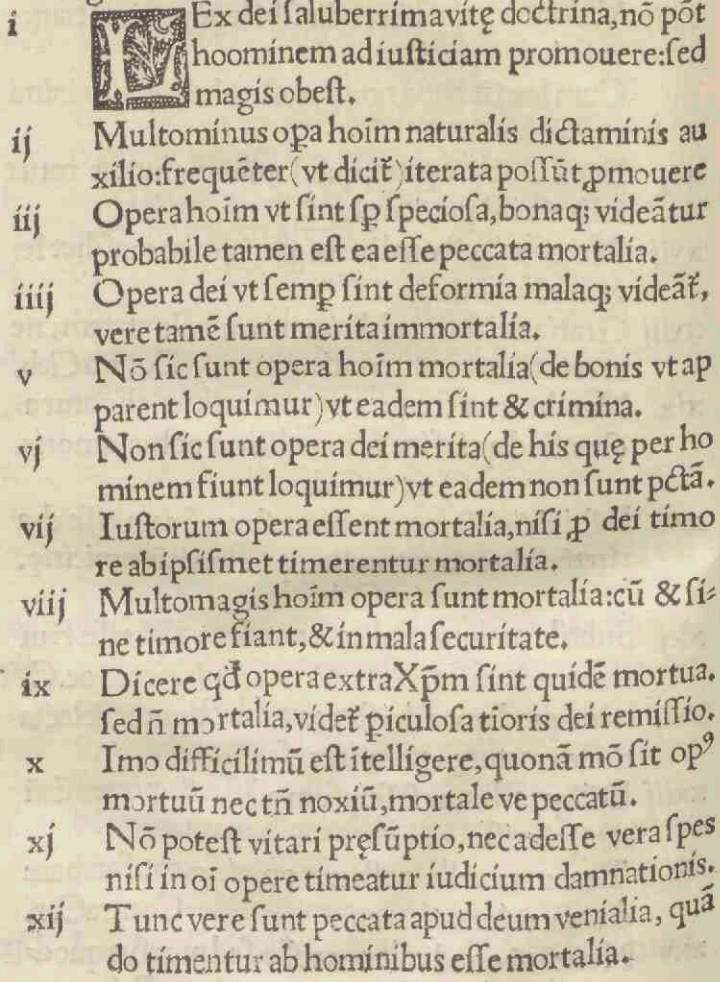 i LEx dei ſaluberrima vitę doctrina, nō pōt
hoominem ad iuſticiam promouere: ſed
magis obeſt.
ij Multominus oꝑa hoīm naturalis dictaminis au
xilio: frequēter (vt dicit᷑) iterata poſſūt ꝓmouere
iij Opera hoīm vt ſint ſꝑ ſpecioſa, bonaqꝫ videātur
probabile tamen eſt ea eſſe peccata mortalia.
iiij Opera dei vt ſemꝑ ſint deformia malaqꝫ videāt᷑,
vere tamē ſunt merita immortalia.
v Nō ſic ſunt opera hoīm mortalia (de bonis vt ap
parent loquimur) vt eadem ſint & crimina.
vj Non ſic ſunt opera dei merita (de his quę per ho
minem fiunt loquimur) vt eadem non ſunt pctā.
vij Iuſtorum opera eſſent mortalia, niſi ꝓ dei timo
re ab ipſiſmet timerentur mortalia.
viij Multomagis hoīm opera ſunt mortalia: cū & ſi⸗
ne timore fiant, & in mala ſecuritate.
ix Dicere qđ opera extra Xp̄m ſint quidē mortua.
ſed n̄ mortalia, videt᷑ ꝑiculoſa tīoris dei remiſſio.
x Imo difficilimū eſt ītelligere, quonā mō ſit opꝰ
mortuū nec tn̄ noxiū, mortale ve peccatū.
xj Nō poteſt vitari pręſūptio, nec adeſſe vera ſpes
niſi in oī opere timeatur iudicium damnationis.
xij Tunc vere ſunt peccata apud deum venialia, quā
do timentur ab hominibus eſſe mortalia.